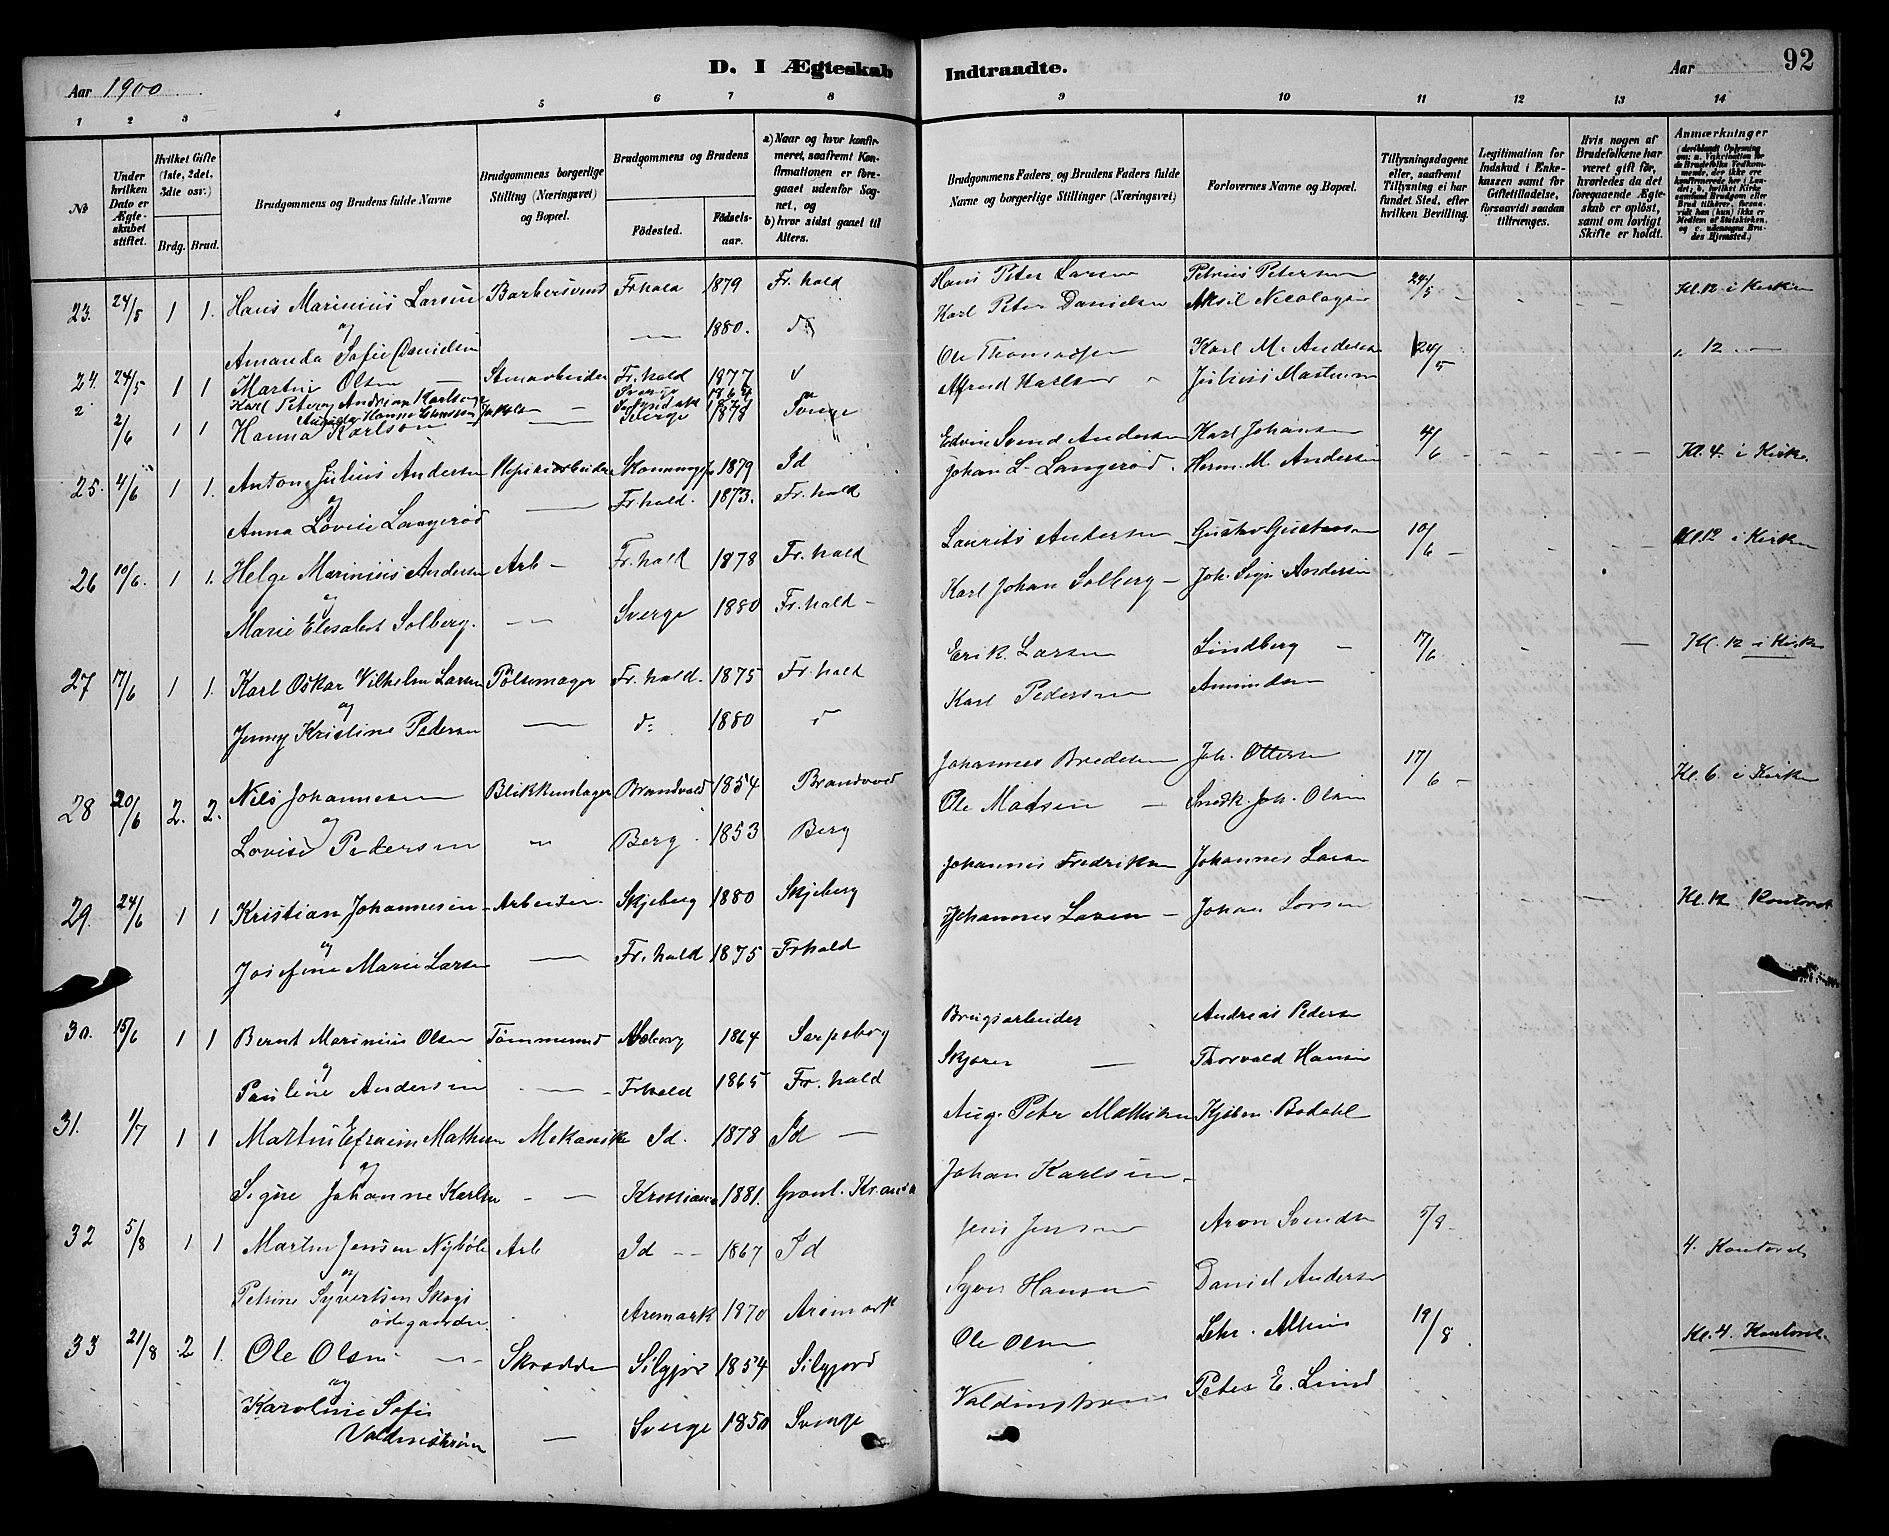 D. I Ægteskab Indtraadte.
Aar 1900
Aar
92
1 2 3 4 5 6 7 8 9 10 11 12 13 14
No
Under hvilken Dato er Ægteskabet stiftet.
Hvilket Gifte (1ste, 2det, 3die osv.)
Brdg. Brud.
Brudgommens og Brudens fulde Navne
Brudgommens borgerlige Stilling (Næringsvei) og Bopæl.
Brudgommens og Brudens
Fødested.
Fødselsaar.
a) Naar og hvor konfirmeret, saafremt Konfirmationen er foregaaet udenfor Sognet, og
b) hvor sidst gaaet til Alters.
Brudgommens Faders, og Brudens Faders fulde Navne og borgerlige Stillinger (Næringsvei)
Forlovernes Navne og Bopæl.
Tillysningsdagene eller, saafremt Tillysning ei har fundet Sted, efter hvilken Bevilling.
Legitimation for Indskud i Enkekassen samt for Giftetilladelse, forsaavidt saadan tiltrænges.
Hvis nogen af Brudefolkene har været gift før, hvorledes da det foregaaende Ægteskab er opløst, samt om lovligt Skifte er holdt.
Anmærkninger
23. 24/5 1 1. Hans Marinius Larsen Barbersvend Frhald 1879 Fr. hald Hans Peter Larsen Petrius Petersen 24/5 Kl. 12 i Kirken
og
Amanda Sofie Danielsen — 1880. do Karl Peter Danielsen Aksel Nicolaysen
24. 24/5 1 1 Martin Olsen Stenarbeider Fr. hald 1877 Ole Thomassen Karl M. Andersen 24/5 " 12 —
2/6 1 1 Hanna Karlson Sverge 1878 Sverge Alfred Karlsen Julius Martinsen
25. 4/6 1 1. Anton Julius Andersen 1879 Id Edvin Svend Andersen Karl Johansen 4/6 Kl. 4. i Kirken
og
Anna Lovise Langerød — Fr hald. 1873. Fr. hald Johan L. Langerød. Herm. M. Andersen
26 10/6. 1 1. Helge Marinius Andersen Arb — Fr. hald 1878 Fr. hald Laurits Andersen Gustav Gustavsen 10/6 Kl 12 i Kirken
og
Marie Elisabet Solberg. — Sverge 1880 Fr. hald — Karl Johan Solberg — Joh. Sigv. Andersen
27 17/6 1 1. Karl Oskar Vilhelm Larsen Pølsemager Fr. hald. 1875 Fr. hald Erik Larsen Lindberg — 17/6 Kl. 12 i Kirken
og
Jenny Kristine Pedersen — do 1880 do Karl Pedersen Amundsen
28 20/6 2. 2. Nils Johannesen Blikkenslager Brandvold 1854 Brandvold Johannes Bredesen Joh. Ottersen 17/6 Kl. 6. i Kirken
og
Lovise Pedersen — Berg 1853 Berg Ole Madsen — Snedk. Joh. Olsen
29. 24/6 1 1 Kristian Johannesen Arbeider Skjeberg 1880 Skjeberg Johannes Fredriksen Johannes Larsen Kl. 12 Kontoret
og
Josefine Marie Larsen — Fr. hald 1875 Frhald Johannes Larsen — Johan Larsen
30. 15/6 1 1 Bernt Marinius Olsen Tømmermd 1864 Sarpsborg Brugsarbeider Andreas Pedersen
og
Pauline Andersen — Frhald 1865 Fr. hald Skjører — Thorvald Hansen
31. 1/7 1 1 Martin Efraim Mathisen Mekaniker Id. 1878 Id — Aug. Peter Mathisen Kjøbm. Bodahl
og
Signe Johanne Karlsen — Kristiania 1881. Grønl. Kr.ania Johan Karlsen
32 5/8 1 1 Martin Jensen Nybøle Arb Id — 1867 Id Jens Jensen Aron Svendsen 5/8 4. Kontoret
og
Petrine Syvertsen Skogsødegaarden. Aremark 1870 Aremark Syver Hansen Daniel Andersen
33 21/8 2 1. Ole Olsen — Skrædder 1854 Ole Olsen 19/8 Kl. 4. Kontoret.
og
Karoline Sofie Valdinstrøm — Sverge 1850 Sverge Valdinstrøm Peter E. Lund